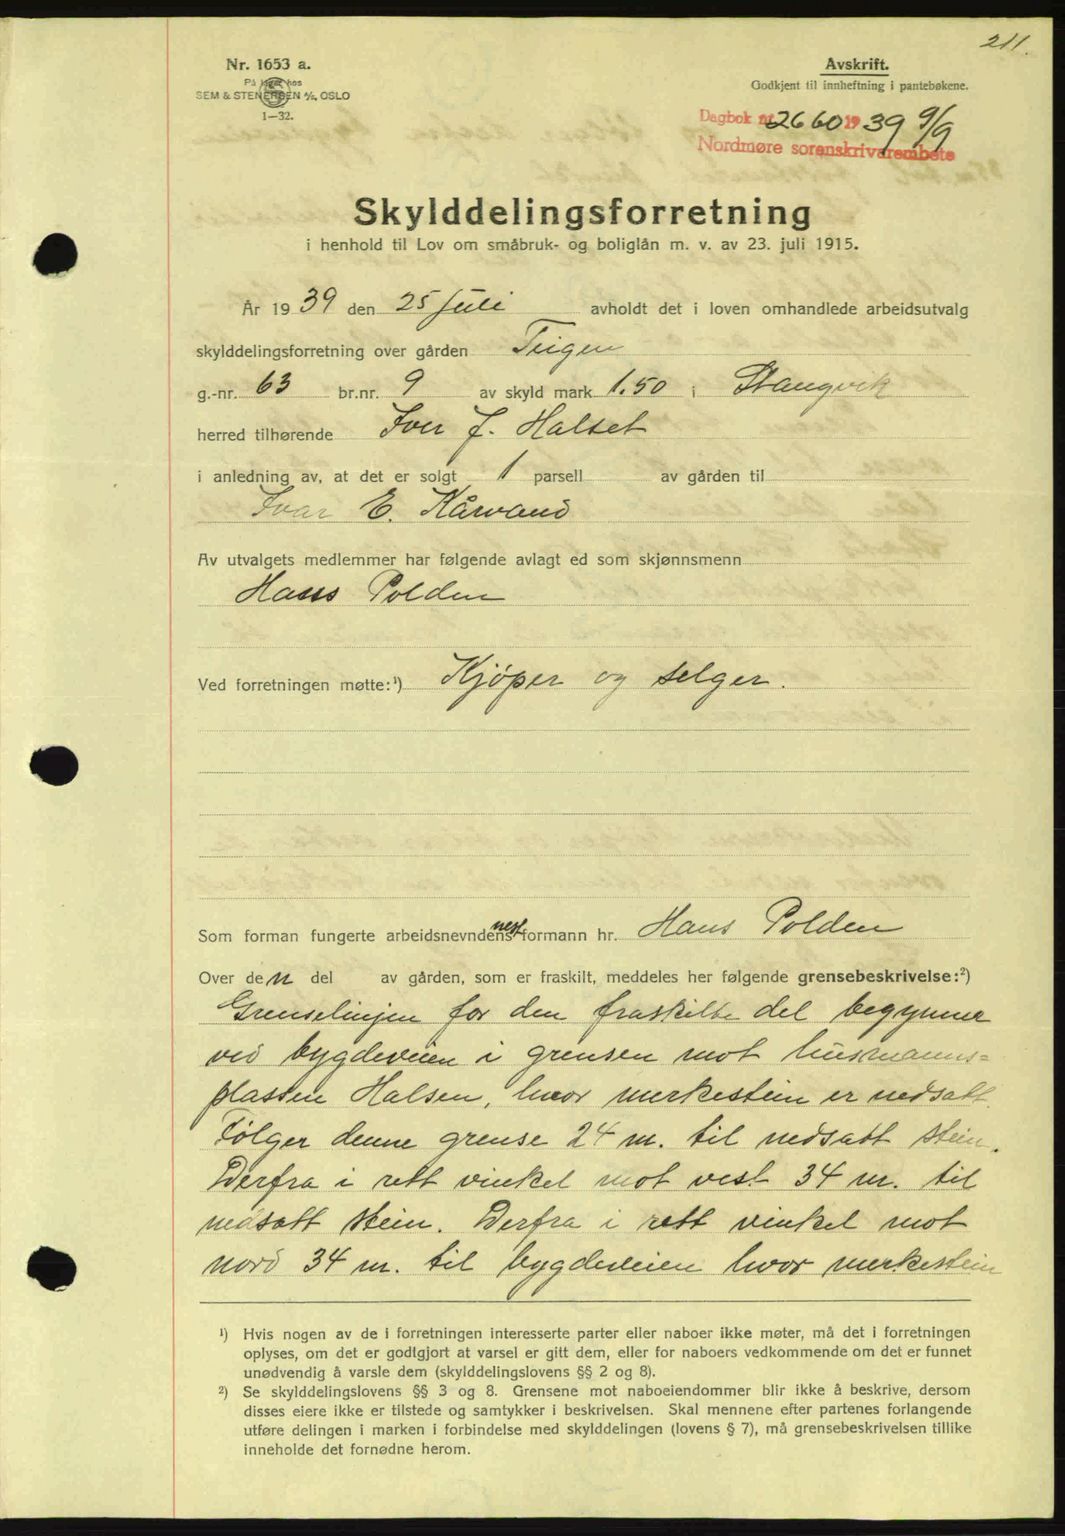 211.
Nr. 1653 a.
På lager hos
SEM & STENERSEN A/S, OSLO
1—32.
Avskrift.
Godkjent til innheftning i pantebøkene.
Dagbok nr. 2660 1939 9/9
Nordmøre sorenskrivarembete
Skylddelingsforretning
i henhold til Lov om småbruk- og boliglån m. v. av 23. juli 1915.
År 1939 den 25 Juli avholdt det i loven omhandlede arbeidsutvalg
skylddelingsforretning over gården Teigen
g.-nr. 63 br.nr. 9 av skyld mark 1.50 i Stangvik
herred tilhørende Iver J. Halset
i anledning av, at det er solgt 1 parsell av gården til
Ivar E. Kårvand
Av utvalgets medlemmer har følgende avlagt ed som skjønnsmenn
Hans Polden
Ved forretningen møtte:¹) Kjøper og selger.
Som forman fungerte arbeidsnevndens nestformann hr. Hans Polden
Over den del av gården, som er fraskilt, meddeles her følgende grensebeskrivelse:²)
Grenselinjen for den fraskilte del begynner
ved bygdeveien i grensen mot husmanns=
plassen Halsen, hvor merkestein er nedsatt.
Følger denne grense 24 m. til nedsatt stein.
Derfra i rett vinkel mot vest 34 m. til
nedsatt stein. Derfra i rett vinkel mot
nord 34 m. til bygdeveien hvor merkestein
¹) Hvis nogen av de i forretningen interesserte parter eller naboer ikke møter, må det i forretningen
oplyses, om det er godtgjort at varsel er gitt dem, eller for naboers vedkommende om det er funnet
unødvendig å varsle dem (skylddelingslovens §§ 2 og 8).
²) Se skylddelingslovens §§ 3 og 8. Grensene mot naboeiendommer blir ikke å beskrive, dersom
disses eiere ikke er tilstede og samtykker i beskrivelsen. Skal mennene efter partenes forlangende
utføre delingen i marken i forbindelse med skylddelingen (lovens § 7), må grensebeskrivelsen tillike
inneholde det fornødne herom.